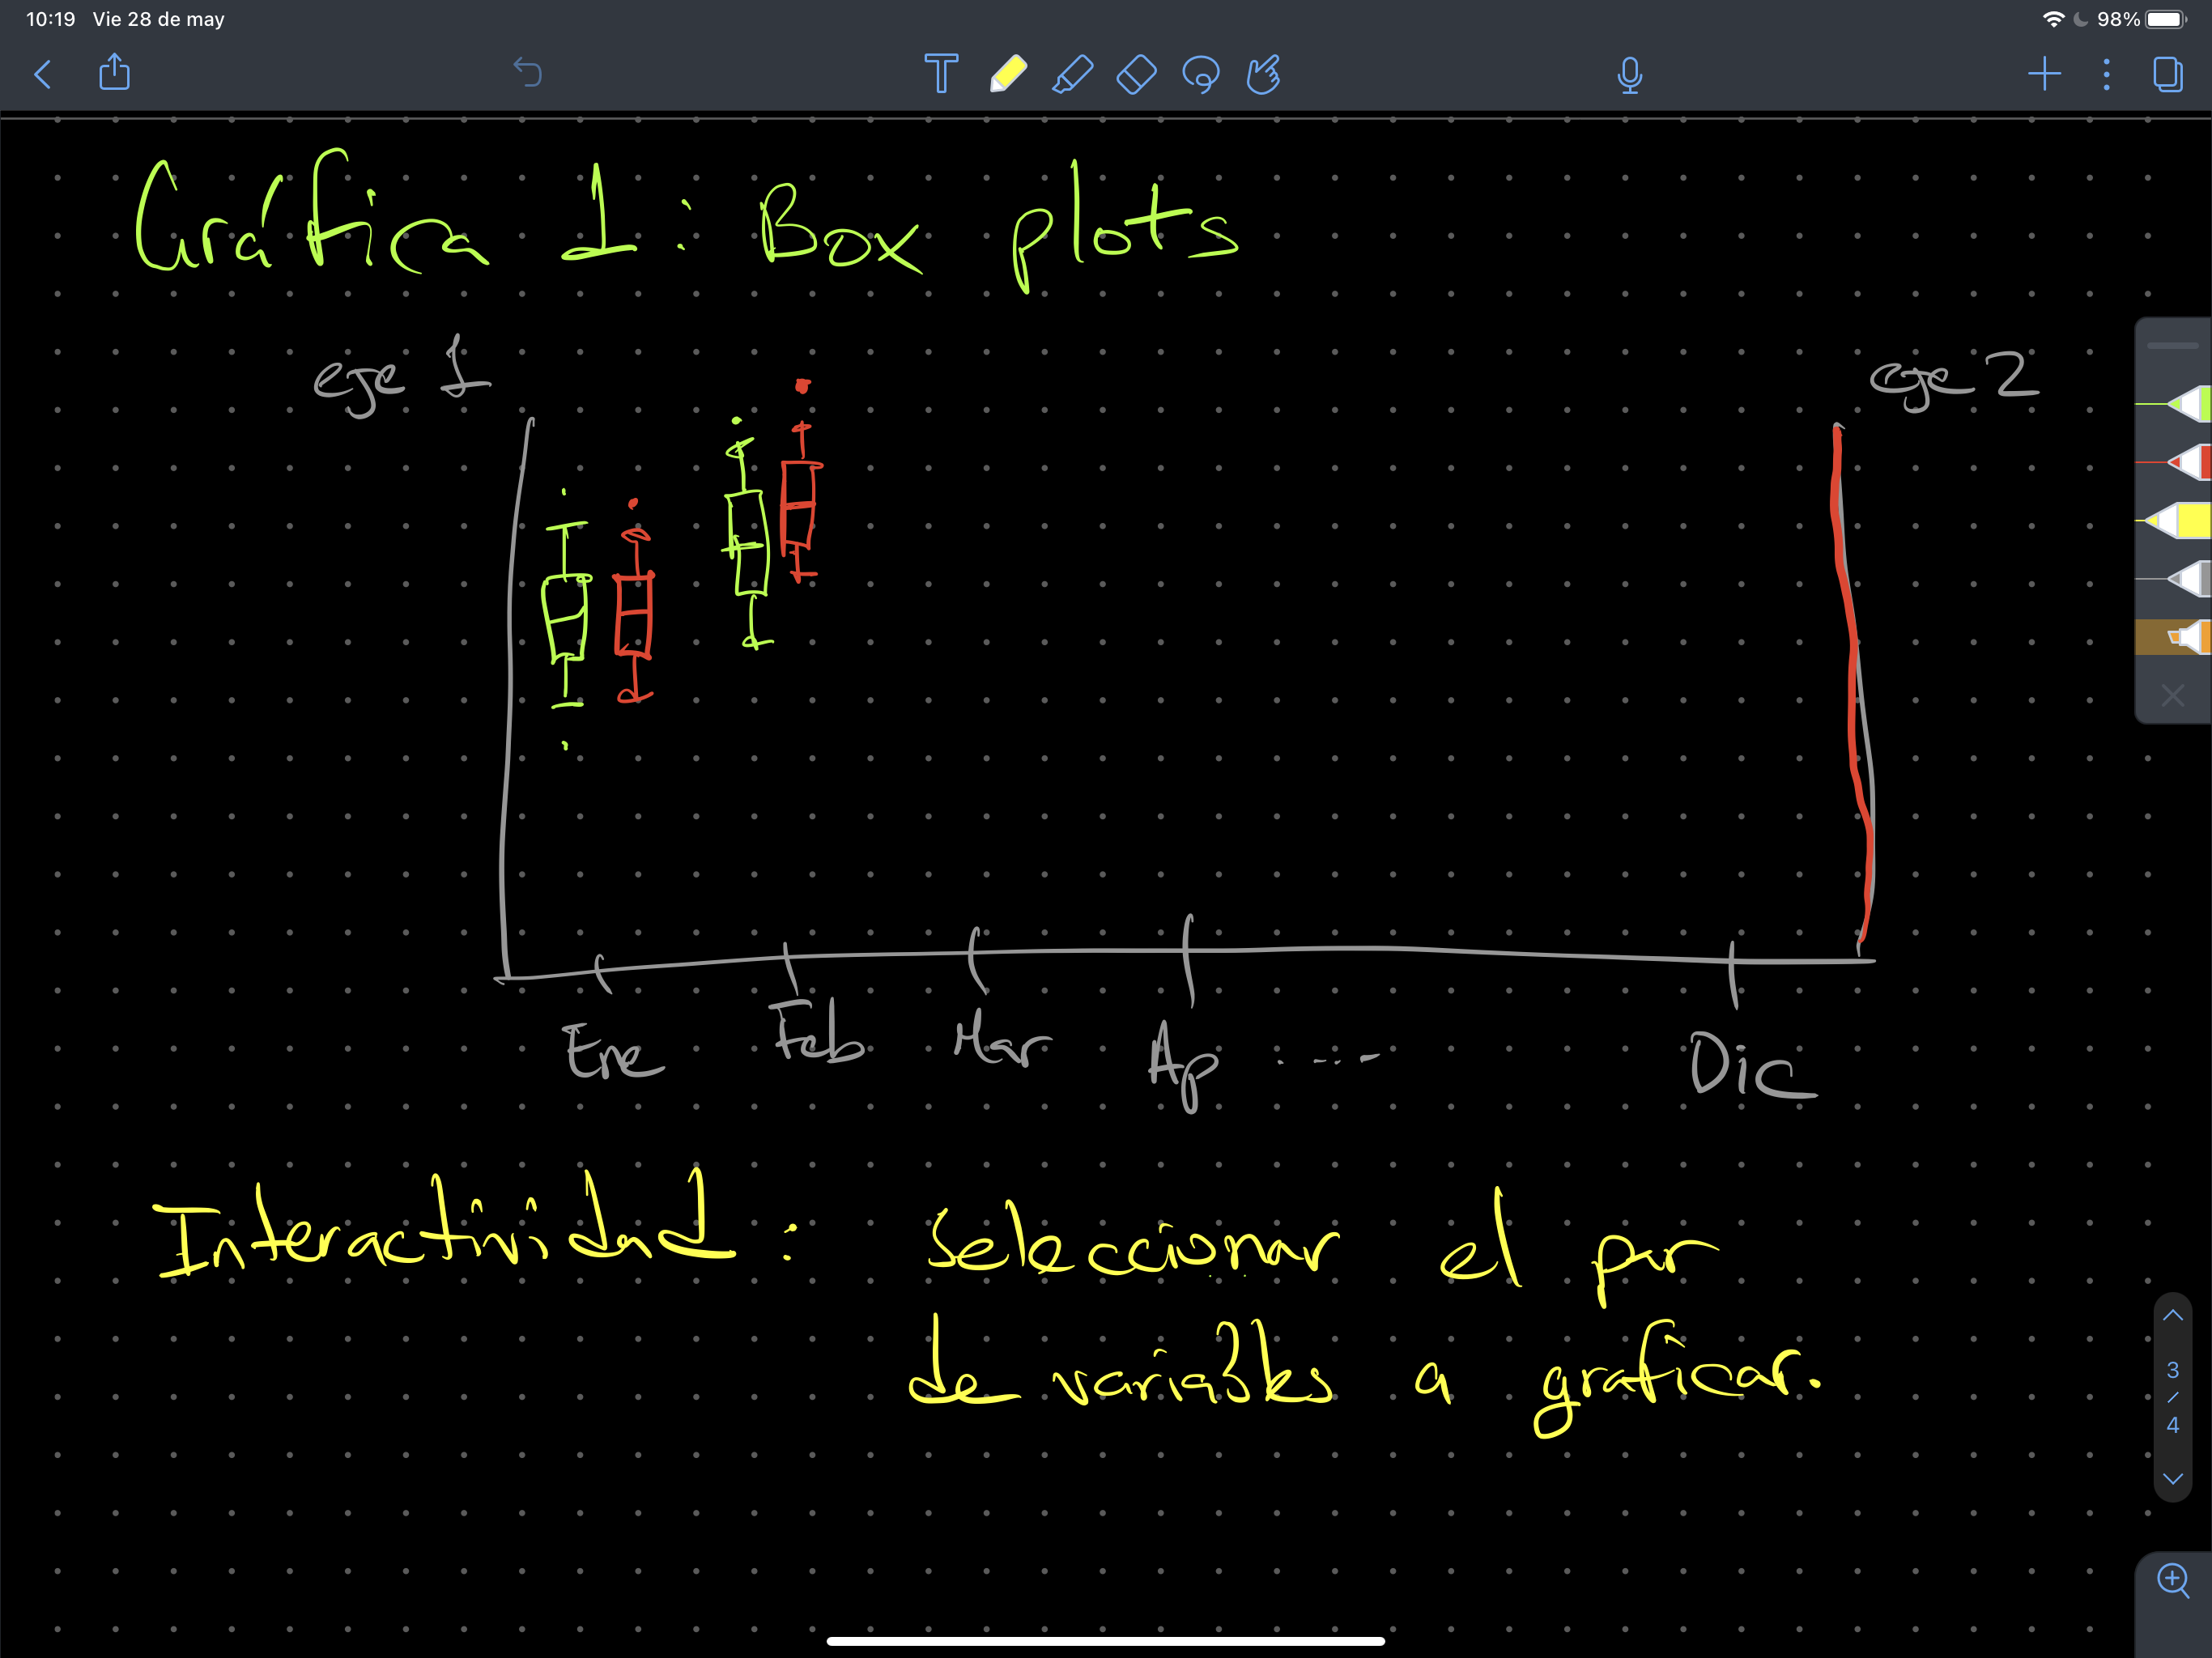 10:19 Vie 28 de may
98%
Gráfica 1: Box plots
eje 1
eje 2
Ene Feb Mar Ap ---- Dic
Interactividad: Seleccionar el par
de variables a graficar.
3
/
4